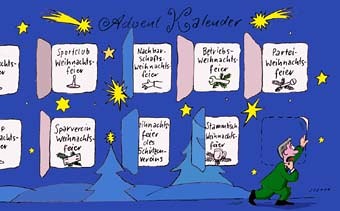 Advent Kalender
chts-
feier
Sportclub
Weihnachts-
feier
Nachbar-
schafts-
weihnachts-
feier
Betriebs-
Weihnachts-
feier
Partei-
Weihnachts-
feier
P
chts-
feier
Sparverein
Weihnachts-
feier
eihnachts-
feier
des
Schützen-
vereins
Stammtisch
Weihnachts-
feier